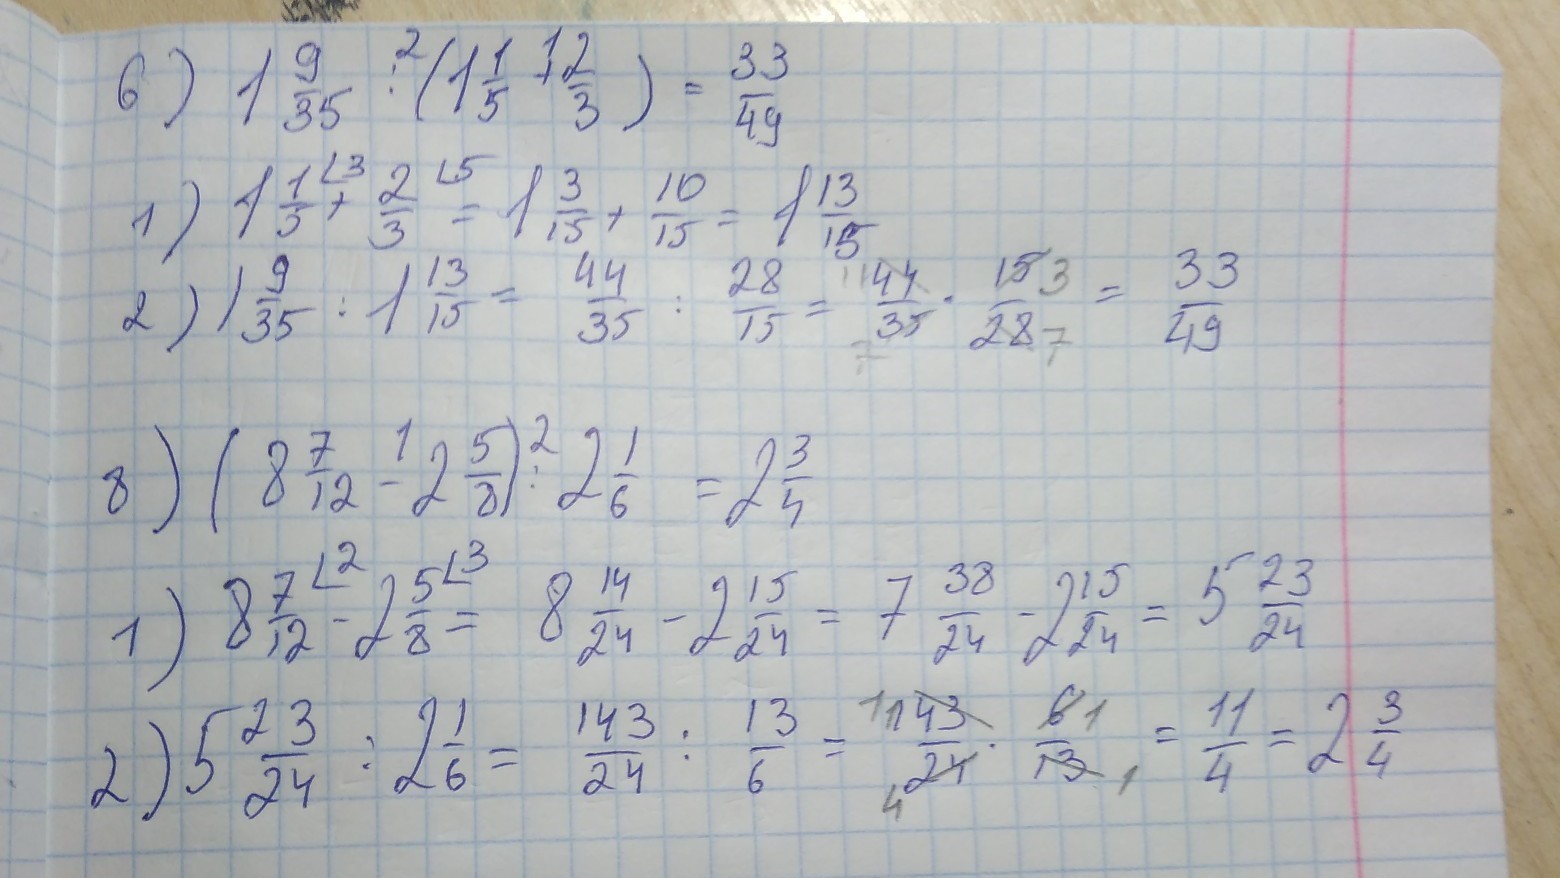 6) 1 9/35 :² (1 1/5 +¹ 2/3) = 33/49
1) 1 1/5 ⌞3 + 2/3 ⌞5 = 1 3/15 + 10/15 = 1 13/15
2) 1 9/35 : 1 13/15 = 44/35 : 28/15 = 11 44/35 7 · 15 3/28 7 = 33/49
8) (8 7/12 -¹ 2 5/8) :² 2 1/6 = 2 3/4
1) 8 7/12 ⌞2 - 2 5/8 ⌞3 = 8 14/24 - 2 15/24 = 7 38/24 - 2 15/24 = 5 23/24
2) 5 23/24 : 2 1/6 = 143/24 : 13/6 = 11 143/24 4 · 6 1/13 1 = 11/4 = 2 3/4